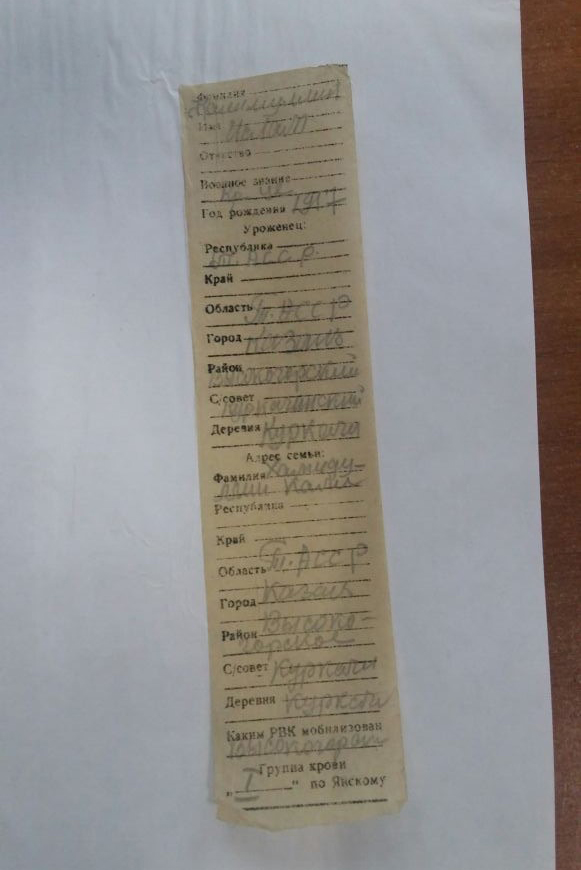 Фамилия
Имя
Отчество
Военное звание
Год рождения 1917
Уроженец:
Республика
Т. АССР.
Край
Область Т. АССР
Город Казань
Район
Высокогорский
С/совет
Куркачинский
Деревня Куркачи
Адрес семьи:
Фамилия Хамиду-
Республика
Край
Область Т. АССР
Город Казань
Район Высоко-
горское
С/совет Куркачи
Деревня Куркачи
Каким РВК мобилизован
Группа крови
„ I “ по Янскому